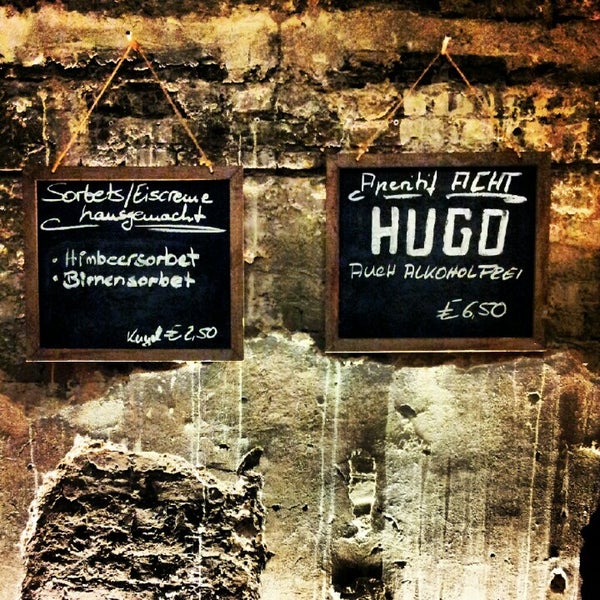 Sorbets/Eiscreme
hausgemacht
• Himbeersorbet
• Birnensorbet
Kugel € 2,50
Aperitif ACHT
HUGO
AUCH ALKOHOLFREI
€ 6,50